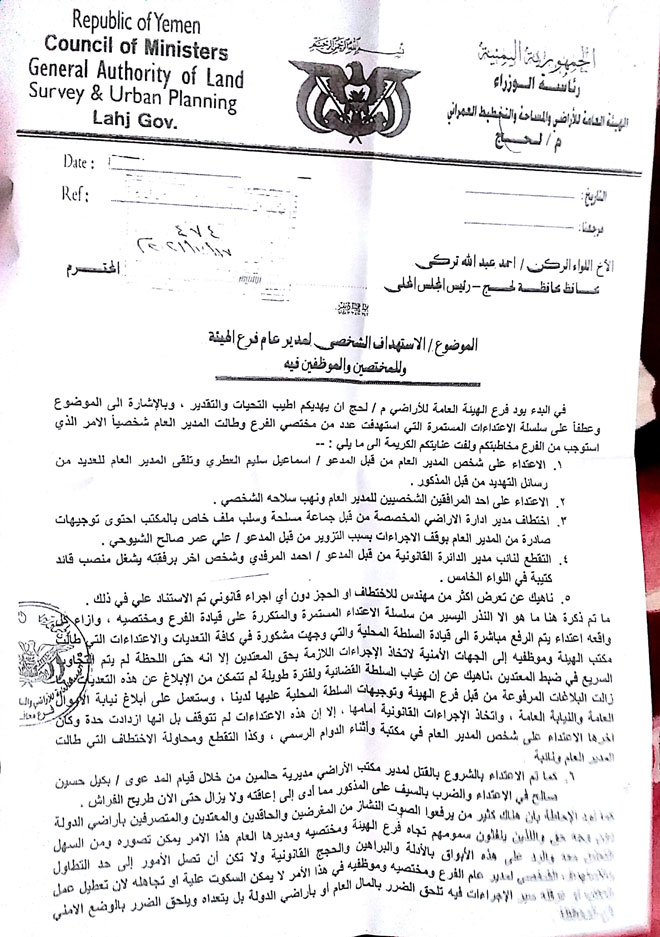 Republic of Yemen
Council of Ministers
General Authority of Land
Survey & Urban Planning
Lahj Gov.
بسم الله الرحمن الرحيم
الجمهورية اليمنية
رئاسة الوزراء
الهيئة العامة للأراضي والمساحة والتخطيط العمراني
م / لحج
Date :
Ref :
التاريخ :
مرجعنا :
٤٧٤
الأخ اللواء الركن / احمد عبد الله تركي
المحترم
محافظ محافظة لحج - رئيس المجلس المحلي
الموضوع / الاستهداف الشخصي لمدير عام فرع الهيئة
وللمختصين والموظفين فيه
في البدء يود فرع الهيئة العامة للأراضي م / لحج ان يهديكم اطيب التحيات والتقدير ، وبالإشارة الى الموضوع
وعطفاً على سلسلة الاعتداءات المستمرة التي استهدفت عدد من مختصي الفرع وطالت المدير العام شخصياً الامر الذي
استوجب من الفرع مخاطبتكم ولفت عنايتكم الكريمة الى ما يلي : --
١. الاعتداء على شخص المدير العام من قبل المدعو / اسماعيل سليم العطري وتلقى المدير العام للعديد من
رسائل التهديد من قبل المذكور .
٢. الاعتداء على احد المرافقين الشخصيين للمدير العام ونهب سلاحه الشخصي .
٣. اختطاف مدير ادارة الاراضي المخصصة من قبل جماعة مسلحة وسلب ملف خاص بالمكتب احتوى توجيهات
صادرة من المدير العام بوقف الاجراءات بسبب التزوير من قبل المدعو / علي عمر صالح الشيوحي .
٤. التقطع لنائب مدير الدائرة القانونية من قبل المدعو / احمد المرفدي وشخص اخر برفقته يشغل منصب قائد
كتيبة في اللواء الخامس .
٥. ناهيك عن تعرض اكثر من مهندس للاختطاف او الحجز دون أي اجراء قانوني تم الاستناد علي في ذلك .
ما تم ذكرة هنا ما هو الا النذر اليسير من سلسلة الاعتداء المستمرة والمتكررة على قيادة الفرع ومختصيه ، وازاء كل
واقعه اعتداء يتم الرفع مباشرة الى قيادة السلطة المحلية والتي وجهت مشكورة في كافة التعديات والاعتداءات التي طالت
مكتب الهيئة وموظفيه إلى الجهات الأمنية لاتخاذ الإجراءات اللازمة بحق المعتدين إلا انه حتى اللحظة لم يتم التجاوب
السريع في ضبط المعتدين ،ناهيك عن إن غياب السلطة القضائية ولفترة طويلة لم نتمكن من الإبلاغ عن هذه التعديات
زالت البلاغات المرفوعة من قبل فرع الهيئة وتوجيهات السلطة المحلية عليها لدينا ، وستعمل على أبلاغ نيابة الأموال
العامة والنيابة العامة ، واتخاذ الإجراءات القانونية أمامها ، إلا إن هذه الاعتداءات لم تتوقف بل انها ازدادت حدة وكان
اخرها الاعتداء على شخص المدير العام في مكتبة وأثناء الدوام الرسمي ، وكذا التقطع ومحاولة الاختطاف التي طالت
المدير العام ونائبة
٦. كما تم الاعتداء بالشروع بالقتل لمدير مكتب الأراضي مديرية حالمين من خلال قيام المد عوى / بكيل حسين
صالح في الاعتداء والضرب بالسيف على المذكور مما أدى إلى إعاقته ولا يزال حتى الان طريح الفراش .
هناك كثير من يرفعوا الصوت النشاز من المغرضين والحاقدين والمعتدين والمتصرفين بأراضي الدولة
سمومهم تجاه فرع الهيئة ومختصيه ومديرها العام هذا الامر يمكن تصوره ومن السهل
على هذه الأبواق بالأدلة والبراهين والحجج القانونية ولا تكن أن تصل الأمور إلى حد التطاول
الشخصي لمدير عام الفرع ومختصيه وموظفيه في هذا الأمر لا يمكن السكوت علية او تجاهله لان تعطيل عمل
الإجراءات فيه تلحق الضرر بالمال العام أو بأراضي الدولة بل يتعداه ويلحق الضرر بالوضع الامني